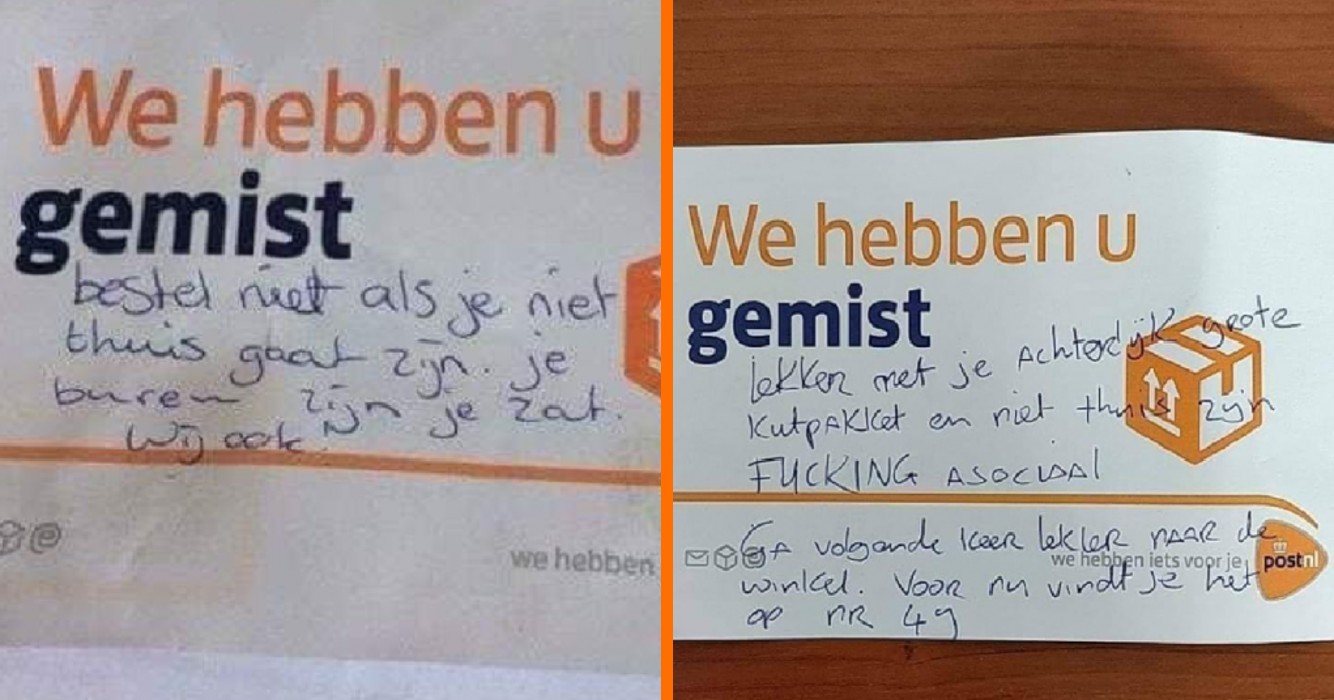 We hebben u
gemist
bestel niet als je niet
thuis gaat zijn. je
buren zijn je zat.
Wij ook.
we hebben
We hebben u
gemist
lekker met je achterlijk grote
kutpakket en niet thuis zijn
FUCKING ASOCIAAL
GA volgende keer lekker naar de
we hebben iets voor je
postnl
winkel. Voor nu vindt je het
op nr 49